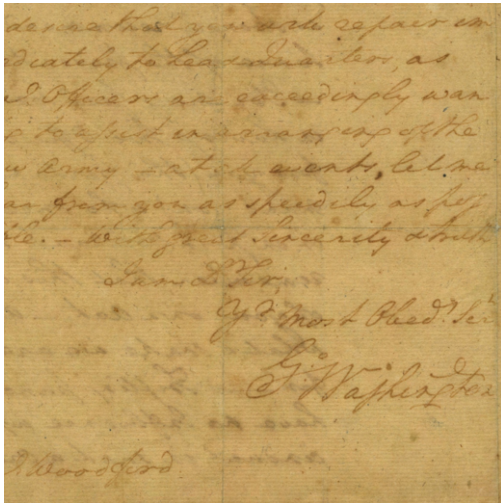 desire that you will repair im
ediately to Head Quarters, as
d. Officers are exceedingly wan
g to assist in arranging of the
w Army – at all events, let me
ear from you as speedily as pos
ble. – With great sincerity & truth
I am Dr Sir,
Yr. most Obedt. Ser
Go: Washington
Woodford